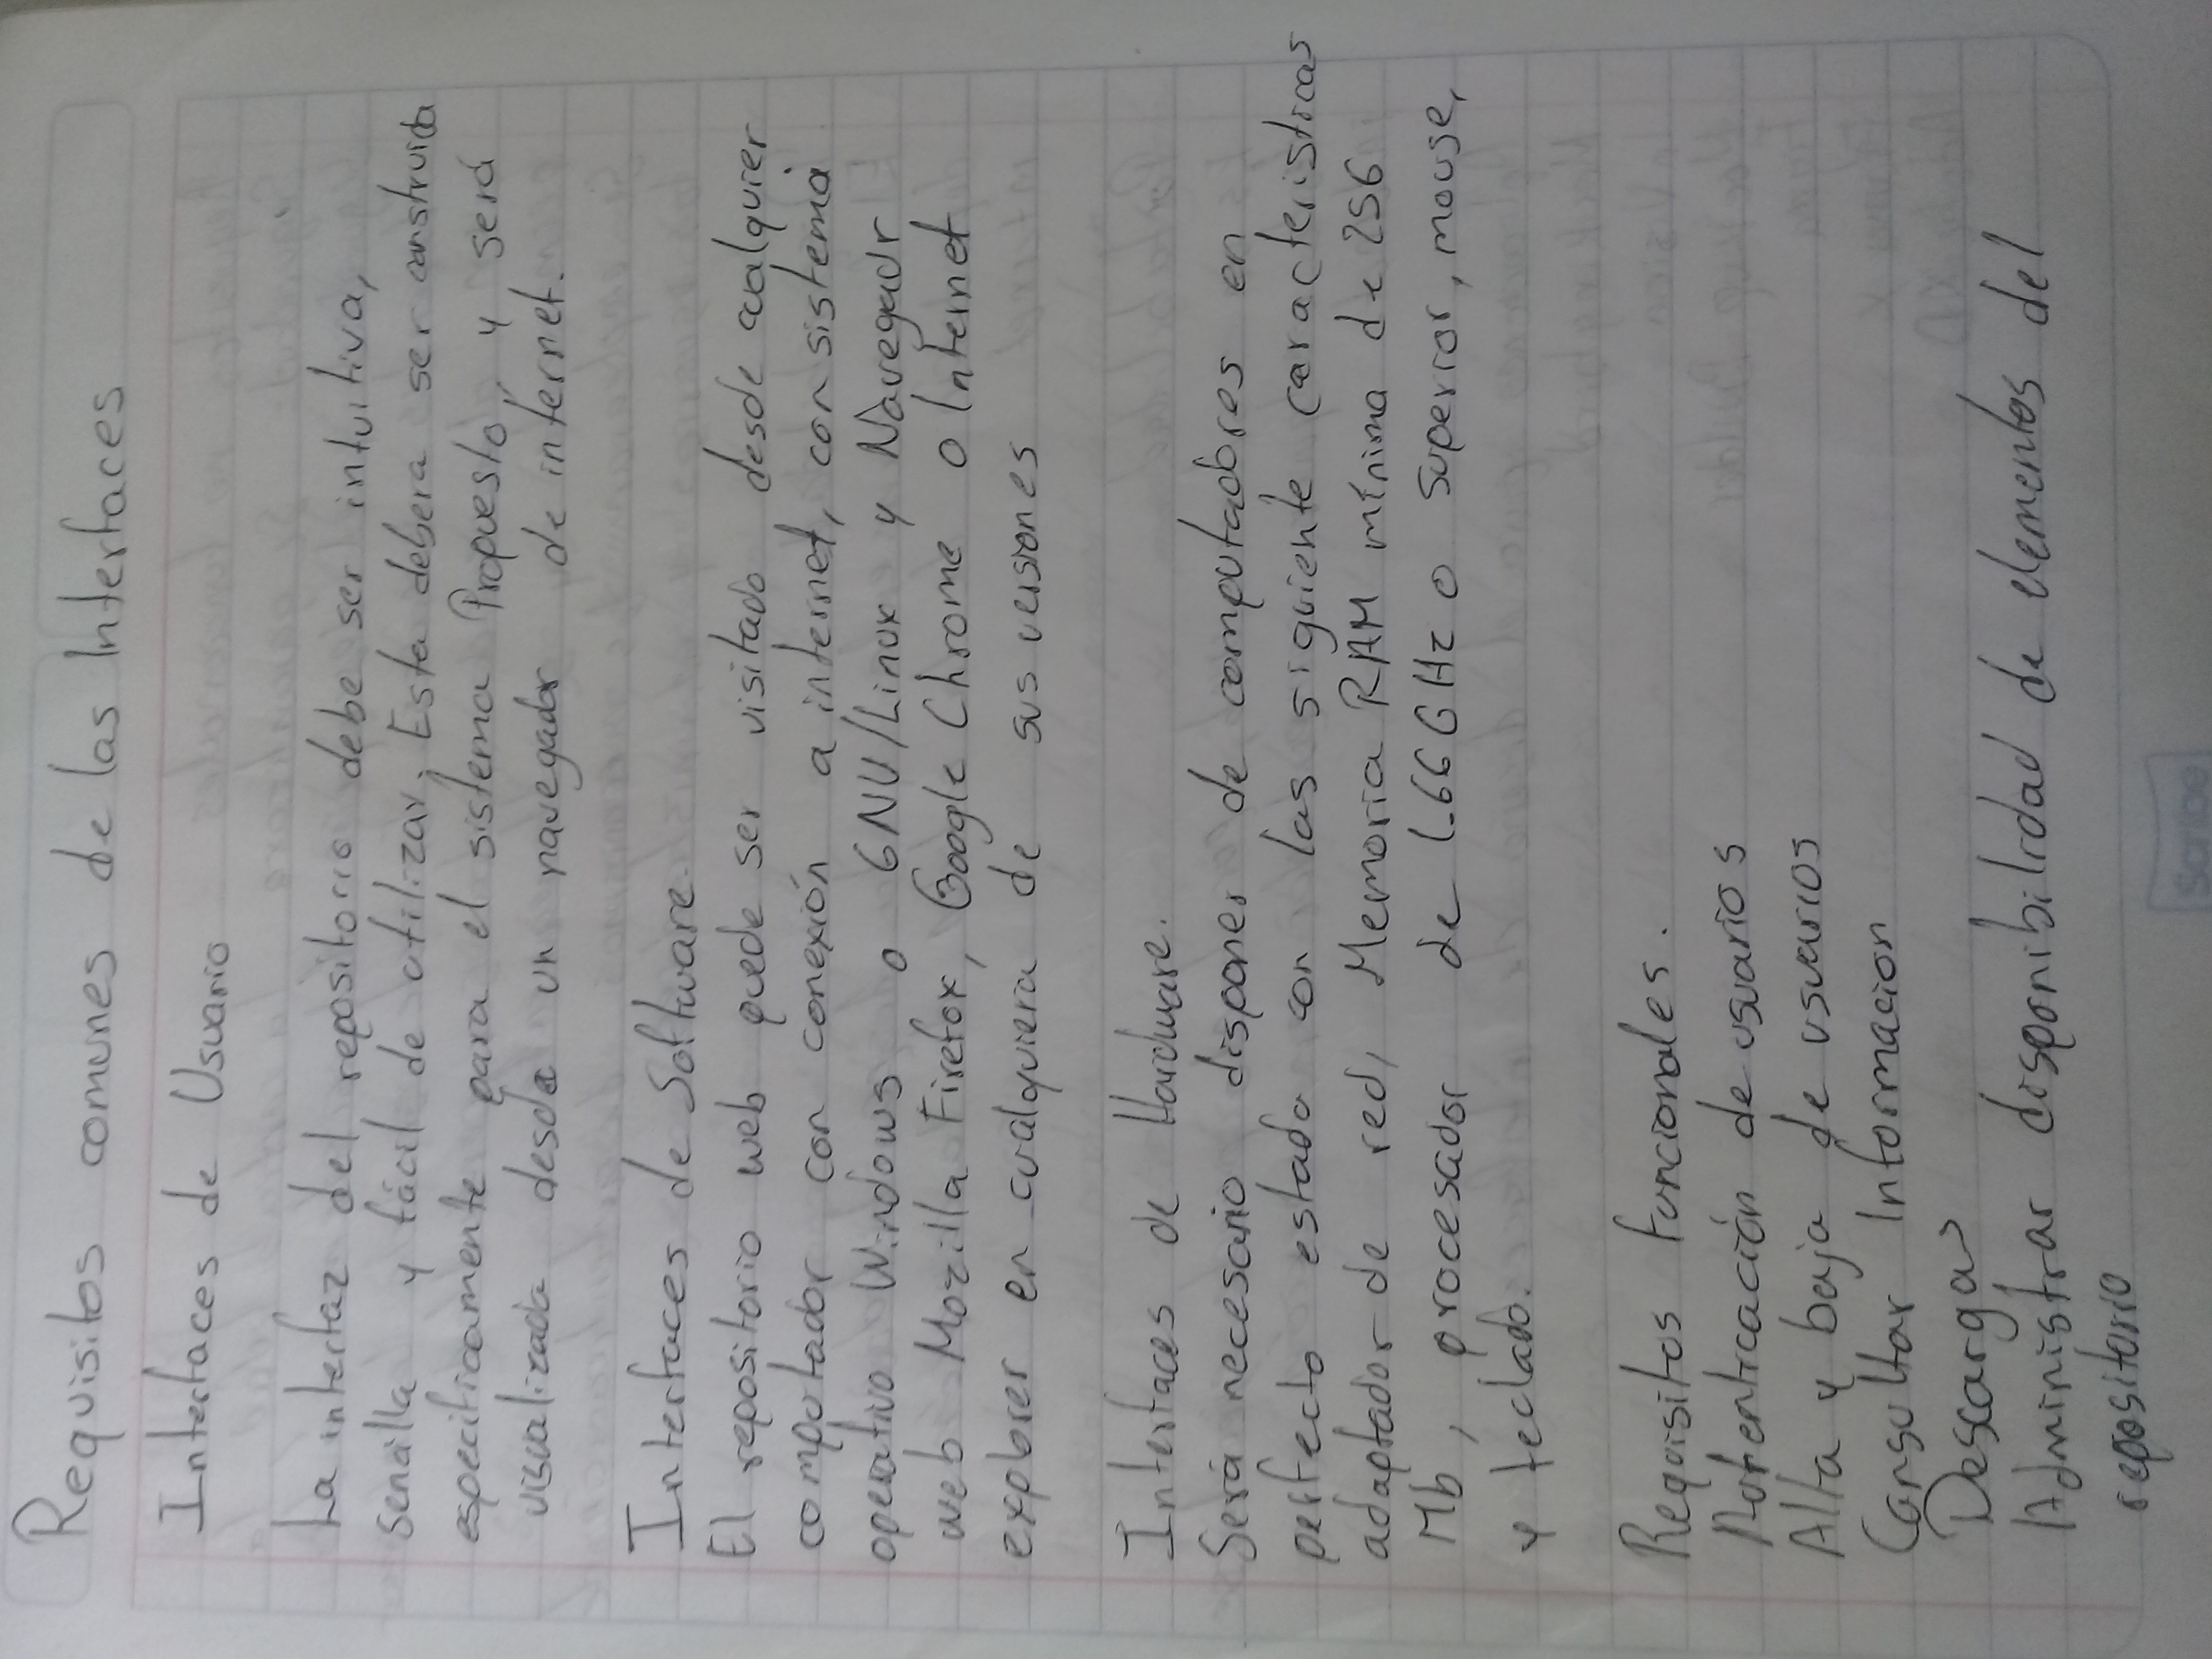 Requisitos comunes de las Interfaces
Interfaces de Usuario
La interfaz del repositorio debe ser intuitiva,
sencilla y fácil de utilizar. Esta debera ser construida
especificamente para el sistema Propuesto, y será
visualizada desde un navegador de internet.
Interfaces de Software
El repositorio web puede ser visitado desde cualquier
computador con conexión a internet, con sistema
operativo Windows o GNU/Linux y Navegador
web Mozilla Firefox, Google Chrome o Internet
explorer en cualquiera de sus versiones
Interfaces de Hardware.
Será necesario disponer de computadores en
perfecto estado con las siguiente caracteristicas
adaptador de red, Memoria RAM mínima de 256
Mb, procesador de 1.66GHz o superior, mouse,
y teclado.
Requisitos funcionales.
Autentificación de usuarios
Alta y baja de usuarios
Consultar Informacion
Descargas
Administrar disponibilidad de elementos del
repositorio
Scribe